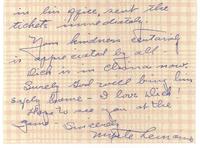 in his office, sent the
tickets immediately.
Your kindness certainly
is appreciated by all.
Dick is in China now.
Surely God will bring him
safely home - I love Dick!
Hope to see you at the
game - Sincerely